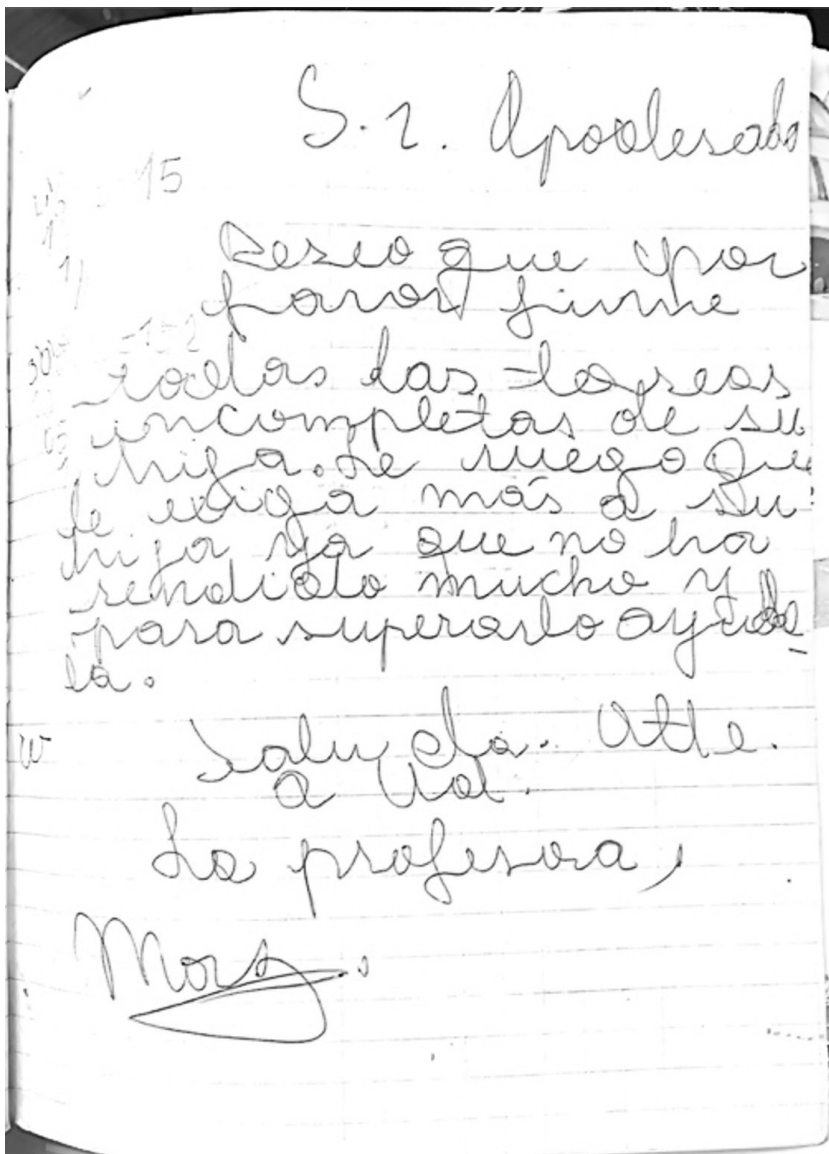 S.r. Apoderado
15
Deseo que por
favor firme
todas las tareas
incompletas de su
hija. Le ruego que
le exiga más a su
hija ya que no ha
rendido mucho y
para superarlo ayúde
la.
Saluda. Atte.
a Ud.
La profesora,